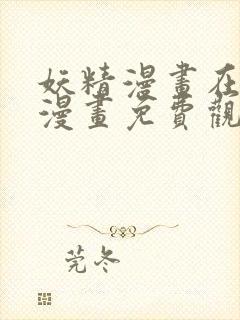 妖精漫畫在
漫畫免費觀
莞冬